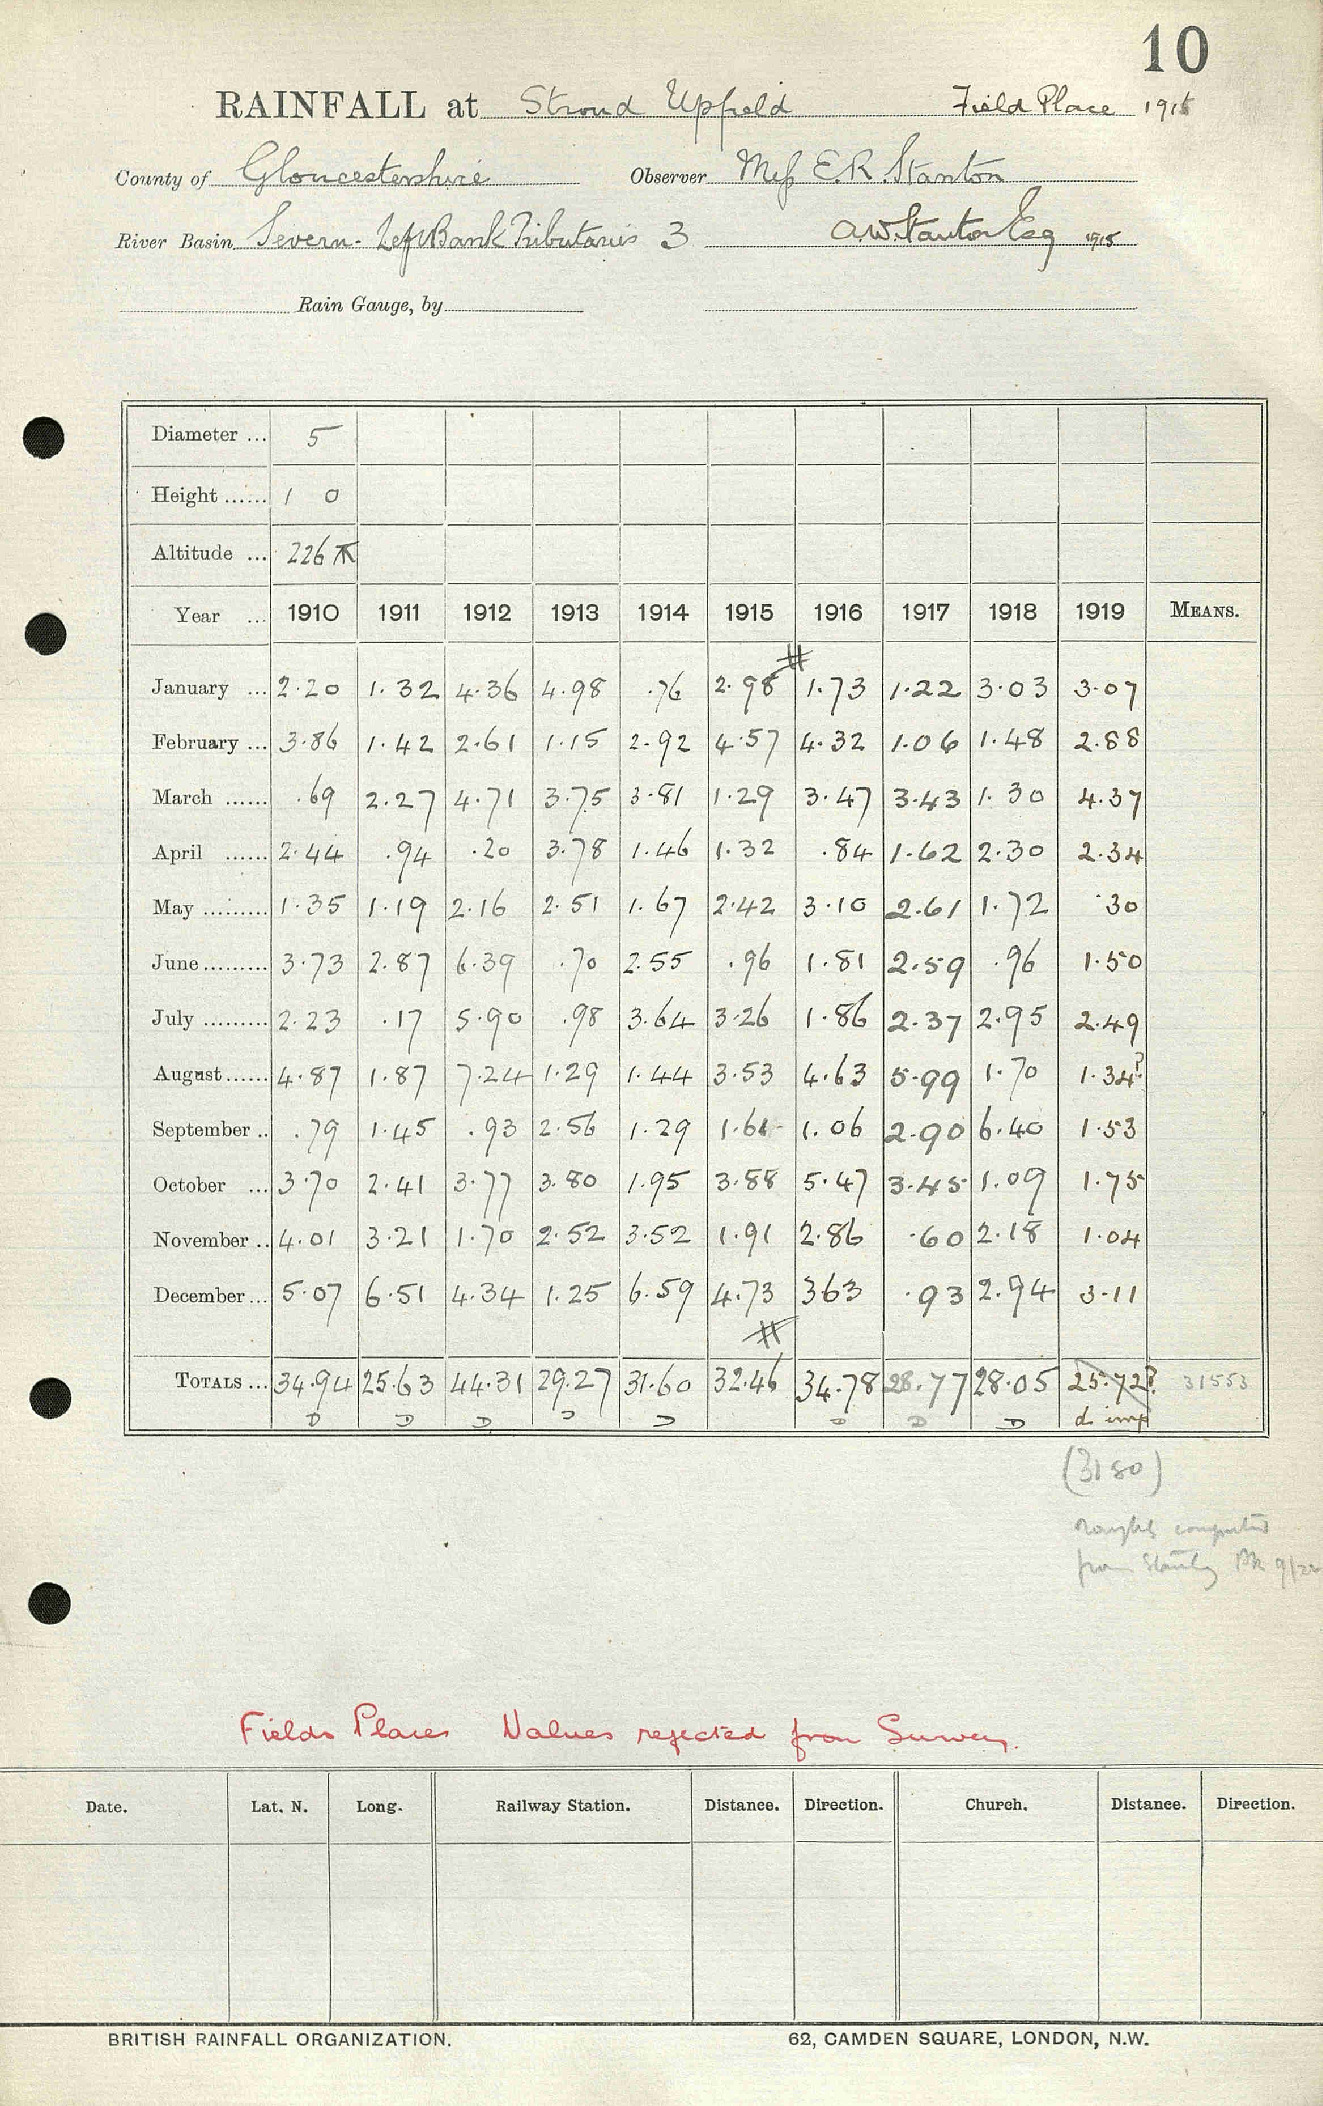 10
RAINFALL at Stroud Upfield Field Place 1915
County of Gloucestershire Observer Miss E.R. Stanton
River Basin Severn - Left Bank Tributaries 3 A.W. Stanton Esq 1915
Rain Gauge, by
Diameter ... 5
Height ...... 1 0
Altitude ... 226
Year ... 1910 1911 1912 1913 1914 1915 1916 1917 1918 1919 MEANS.
#
January ... 2.20 1.32 4.36 4.98 .76 2.98 1.73 1.22 3.03 3.07
February ... 3.86 1.42 2.61 1.15 2.92 4.57 4.32 1.06 1.48 2.88
March ...... .69 2.27 4.71 3.75 3.81 1.29 3.47 3.43 1.30 4.37
April ...... 2.44 .94 .20 3.78 1.46 1.32 .84 1.62 2.30 2.34
May ......... 1.35 1.19 2.16 2.51 1.67 2.42 3.10 2.61 1.72 .30
June ......... 3.73 2.87 6.39 .70 2.55 .96 1.81 2.59 .96 1.50
July ......... 2.23 .17 5.90 .98 3.64 3.26 1.86 2.37 2.95 2.49
August ...... 4.87 1.87 7.24 1.29 1.44 3.53 4.63 5.99 1.70 1.34?
September .. .79 1.45 .93 2.56 1.29 1.61 1.06 2.90 6.40 1.53
October ... 3.70 2.41 3.77 3.80 1.95 3.88 5.47 3.45 1.09 1.75
November .. 4.01 3.21 1.70 2.52 3.52 1.91 2.86 .60 2.18 1.04
December ... 5.07 6.51 4.34 1.25 6.59 4.73 363 .93 2.94 3.11
#
TOTALS ... 34.94 25.63 44.31 29.27 31.60 32.46 34.78 28.77 28.05 25.72? 31553
D D D D D D D D d. imp
(3180)
roughly computed
from Stanley Pk 9/22
Fields Places Values rejected from Survey.
Date. Lat. N. Long. Railway Station. Distance. Direction. Church. Distance. Direction.
BRITISH RAINFALL ORGANIZATION. 62, CAMDEN SQUARE, LONDON, N.W.